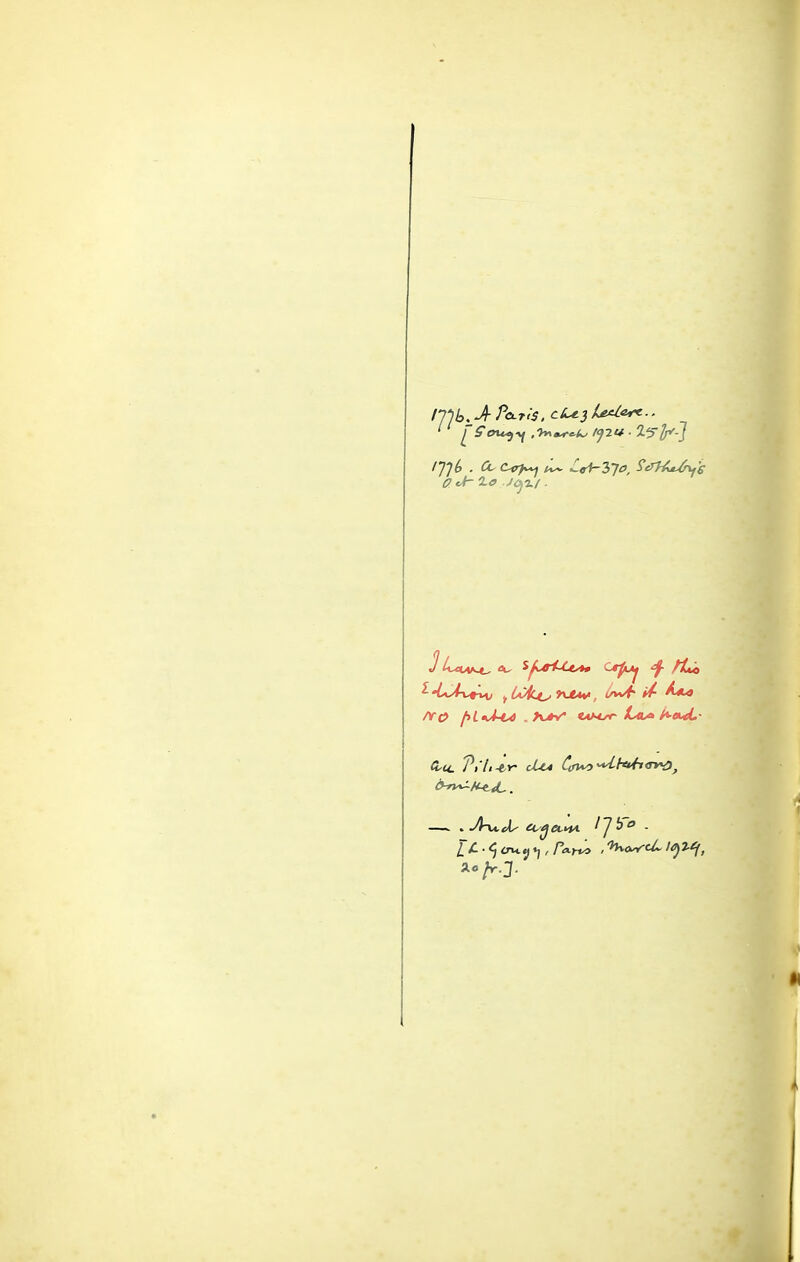 1776. A Paris, chez Leclerc..
[Gougy, March 1924. 25 fr.]
1776. A copy in Lot 370, Sotheby's
Oct 20. 1921.
I have a spotless copy of this
edition, like new, but it has
NO plates. nor ever has had.
au. Prix-er des Cons
omitted.
—. And again 1750.
[L. Gougy, Paris, March 1929,
20 fr.].